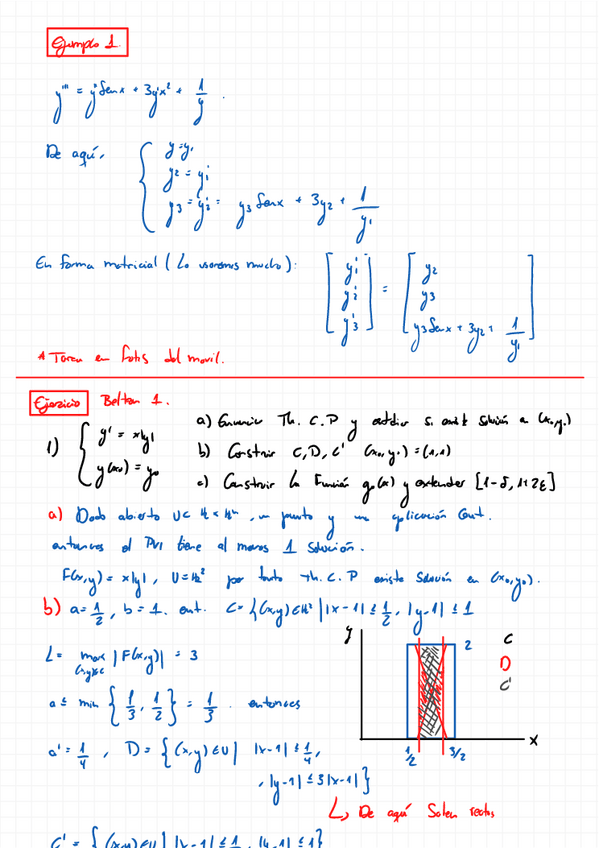 Ejemplo 1.
y''' = y'' Sen x + 3y'x² + 1/y.
De aquí,
{ y = y₁
y₂ = y₁'
y₃ = y₂' = y₃ Sen x + 3y₂ + 1/y₁
En forma matricial (Lo usaremos mucho): [y₁' y₂' y₃'] = [y₂ y₃ y₃ Sen x + 3y₂ + 1/y₁]
* Tarea en fotos del movil.
Ejercicio Beltran 1.
1) { y' = x|y|
y(x₀) = y₀
a) Enunciar Th. C.P y estdiar si existe solución a (x₀,y₀)
b) Constrir C, D, C' (x₀,y₀) = (1,1)
c) Constrir la Función g₀(x) y extender [1-δ, 1+2ε]
a) Dado abierto U ⊂ ℝ × ℝⁿ, un punto y una aplicación Cont.
entonces el PVI tiene al menos 1 solución.
F(x,y) = x|y|, U = ℝ² por tanto Th. C.P existe Solución en (x₀,y₀).
b) a = 1/2, b = 1. ent. C = {(x,y) ∈ ℝ² | |x-1| ≤ 1/2, |y-1| ≤ 1
L = max |F(x,y)| = 3
(x,y)∈C
a ≤ min {1/3, 1/2} = 1/3. entonces
a' = 1/4, D = {(x,y) ∈ U | |x-1| ≤ 1/4,
, |y-1| ≤ 3|x-1|}
y
2
C
D
C'
x
1/2
3/2
↳ De aquí Salen rectas
C' = {(x,y) ∈ U | |x-1| ≤ 1, |y-1| ≤ 1}